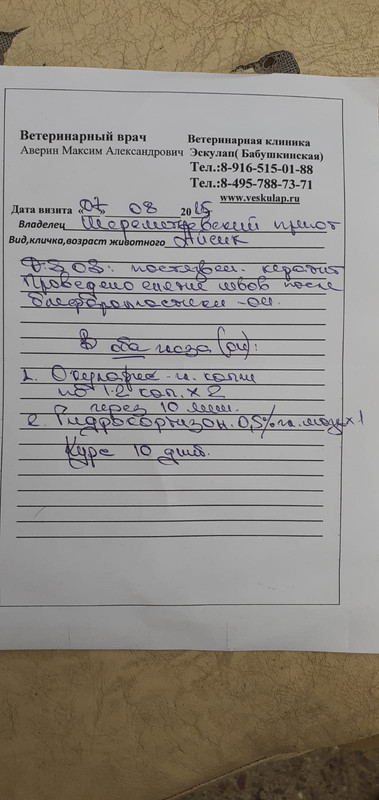 Ветеринарный врач
Аверин Максим Александрович
Ветеринарная клиника
Эскулап( Бабушкинская)
Тел.:8-916-515-01-88
Тел.:8-495-788-73-71
www.veskulap.ru
Дата визита «07» 08 20
Владелец Шереметьевский приют
Вид,кличка,возраст животного Айсик
DS OS: постязвен. кератит
Проведено снятие швов после
блефаропластики - ou.
В оба глаза (ou):
1. Окуларис - н. капли
по 1-2 кап. x 2
через 10 мин.
2. Гидрокортизон. 0,5% гл. мазь x 1
Курс 10 дней.